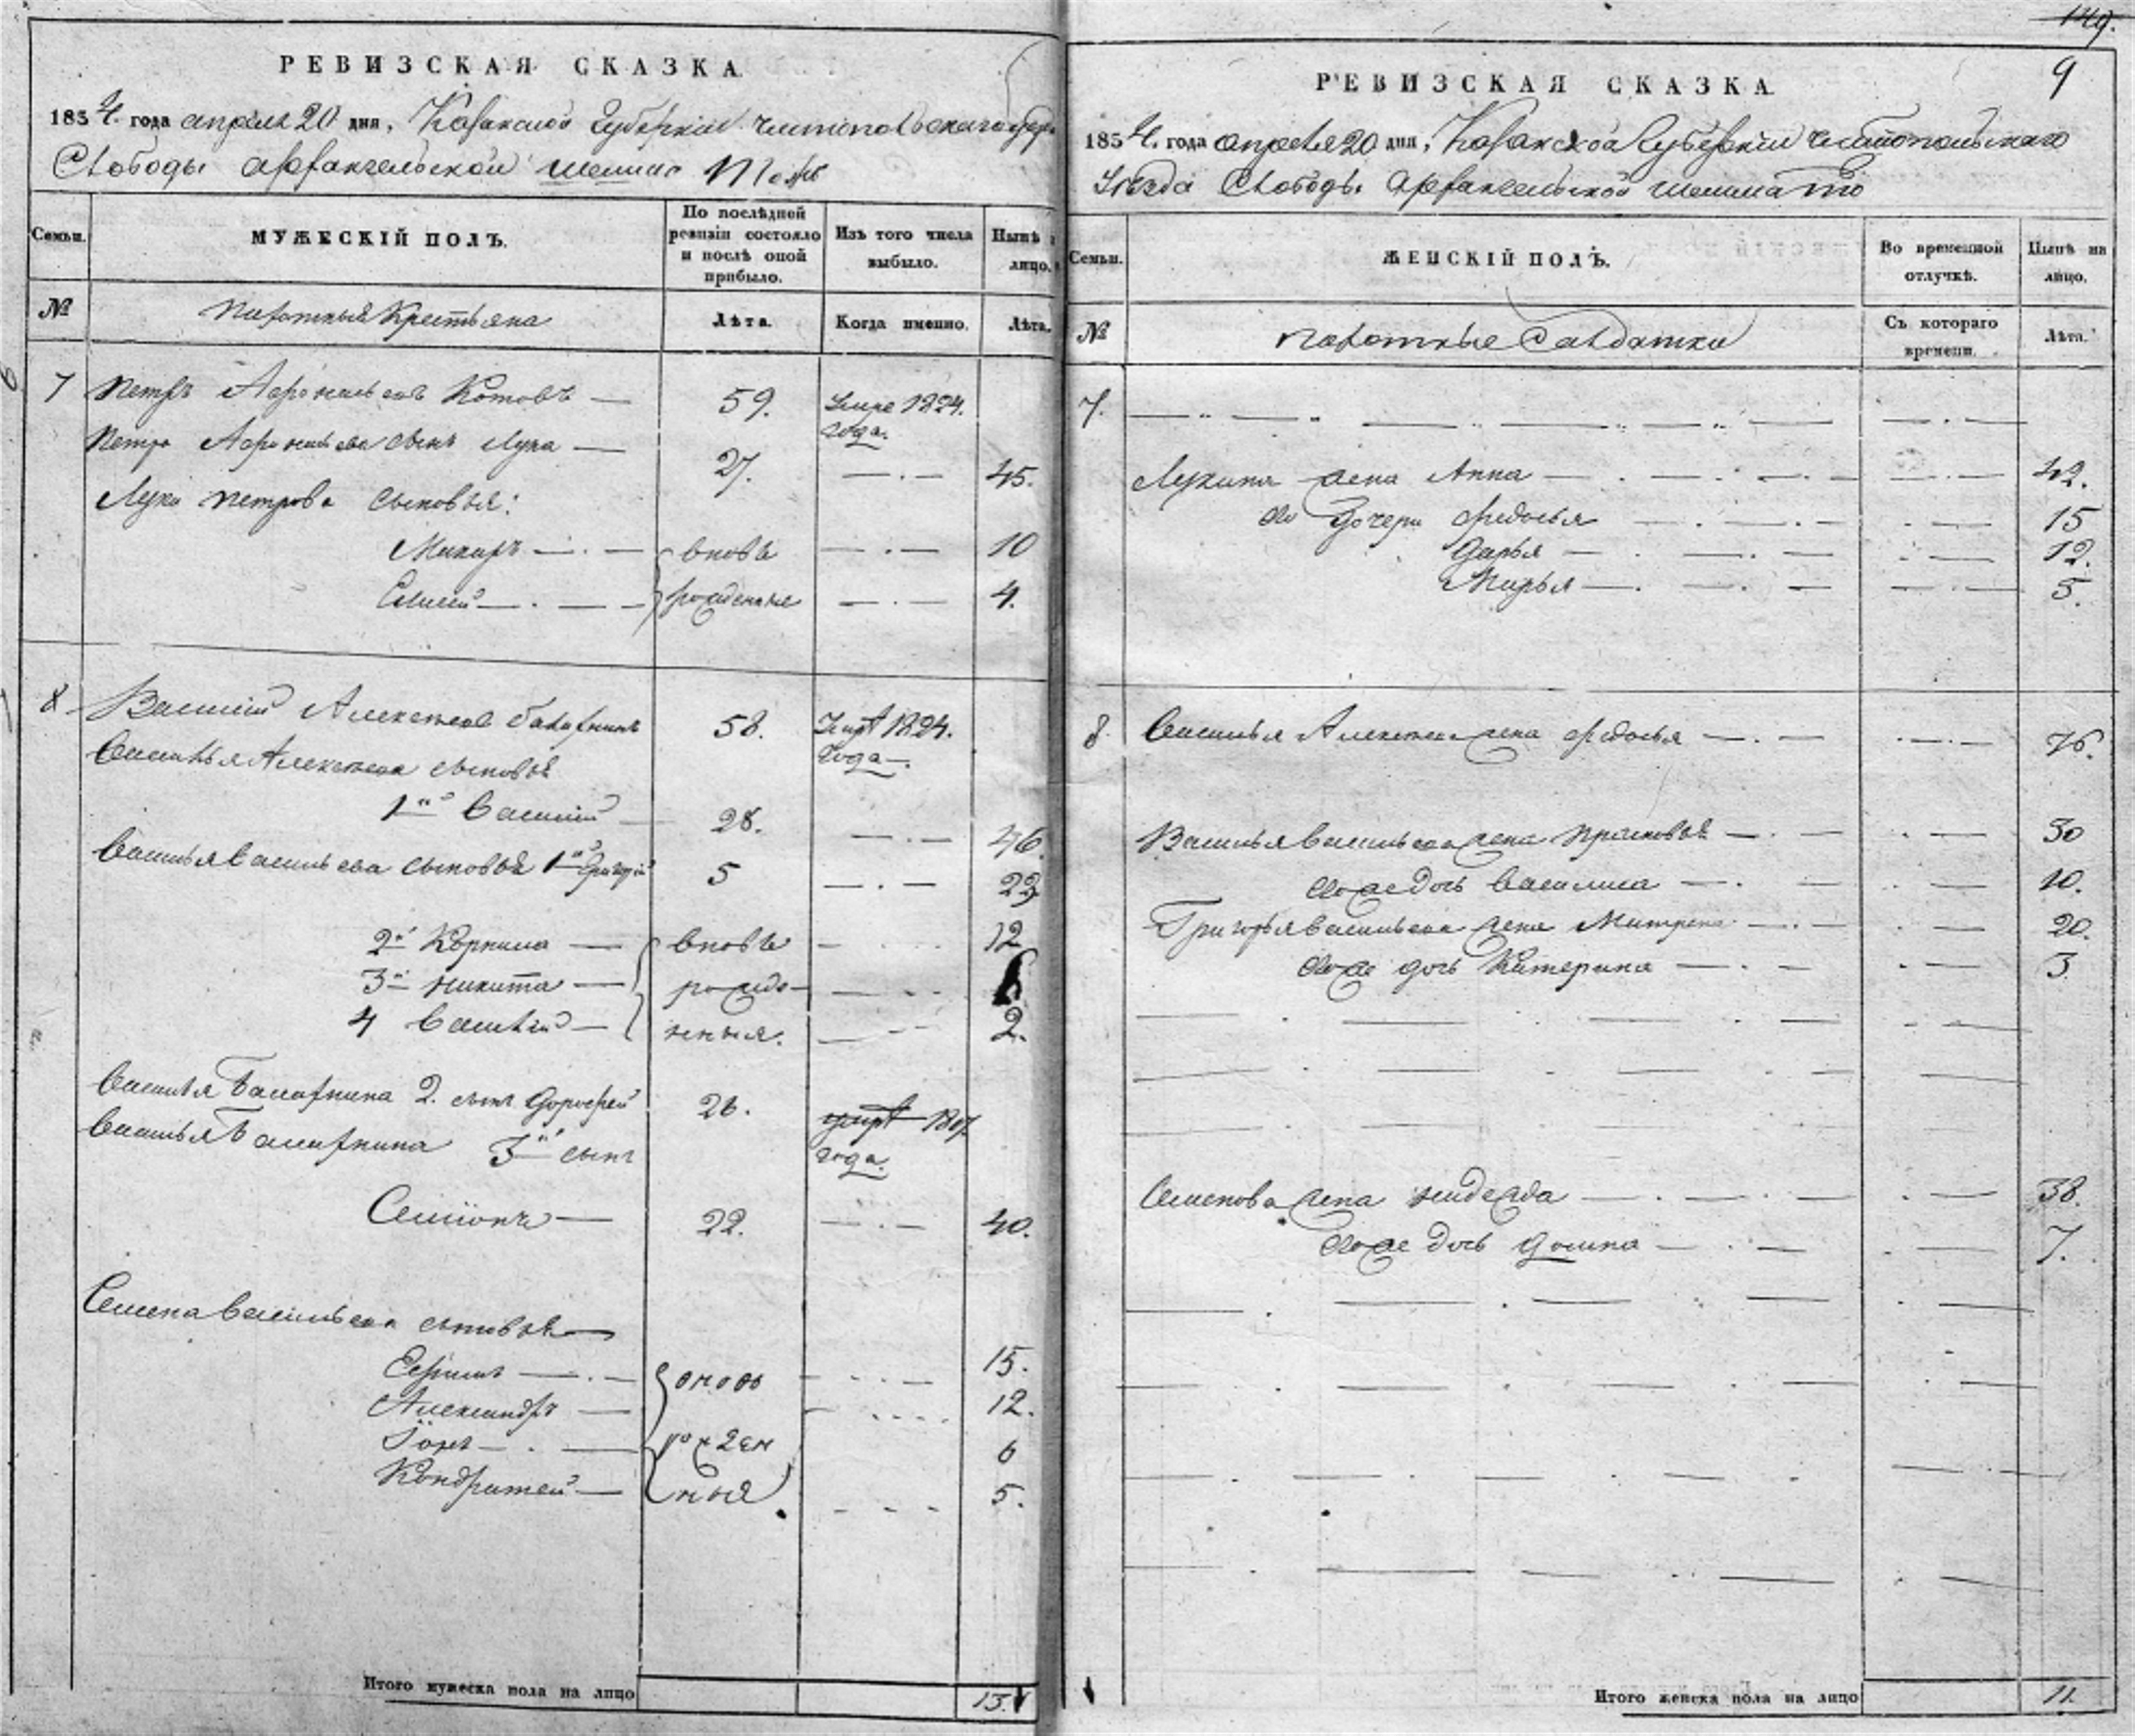 РЕВИЗСКАЯ СКАЗКА
1854. года апреля 20 дня, Казанской Губернии Чистопольского
Слободы Архангельской
Семьи.
МУЖЕСКІЙ ПОЛЪ.
По послѣдней ревизіи состояло и послѣ оной прибыло.
Изъ того числа выбыло.
Нынѣ на лицо.
№
Крестьяна
Лѣта.
Когда именно.
Лѣта.
7 Петръ Котовъ — 59. 1824.
года.
Петра сынъ Лука — 27. — . — 45.
Луки Петрова сыновья:
Макаръ — . — вновь — . — 10
Елисей — . — рожденные — . — 4.
8 Василий Алексеевъ 58. 1824.
года —.
Василья Алексеева сыновья
1й Василий 28. — . — 46.
Василья Васильева сыновья 1й Григорій 5 — . — 22
2й Корнила — вновь 12
3й Никита — рожде-
4 Василій — нныя. 2.
Василья 2. сынъ Дорофей 26.
года.
Василья 3й сынъ
Семіонъ — 22. — . — 40.
Семена Васильева сыновья —
Ефимъ — . — вновь 15.
Александръ — 12.
Іонъ — . — рожден 6
Кондратей — ныя 5.
Итого мужеска пола на лицо 15.
149.
9
РЕВИЗСКАЯ СКАЗКА
1854. года апреля 20 дня, Казанской Губернии Чистопольскаго
Уезда Слободы Архангельской
Семьи.
ЖЕНСКІЙ ПОЛЪ.
Во временной отлучкѣ.
Нынѣ на лицо.
№
Солдатки
Съ котораго времени.
Лѣта.
7.
Лукина жена Анна — 42.
дочери Федосья — 15
Дарья — 12.
Марья — 5.
8. Василья Алексеева жена Федосья — 76.
Василья Васильева жена Прасковья — 50
дочь Василиса — 10.
Григорья Васильева жена Матрена — 20.
дочь Катерина — 3
Семенова жена — 38.
дочь Домна — 7.
Итого женска пола на лицо 11.